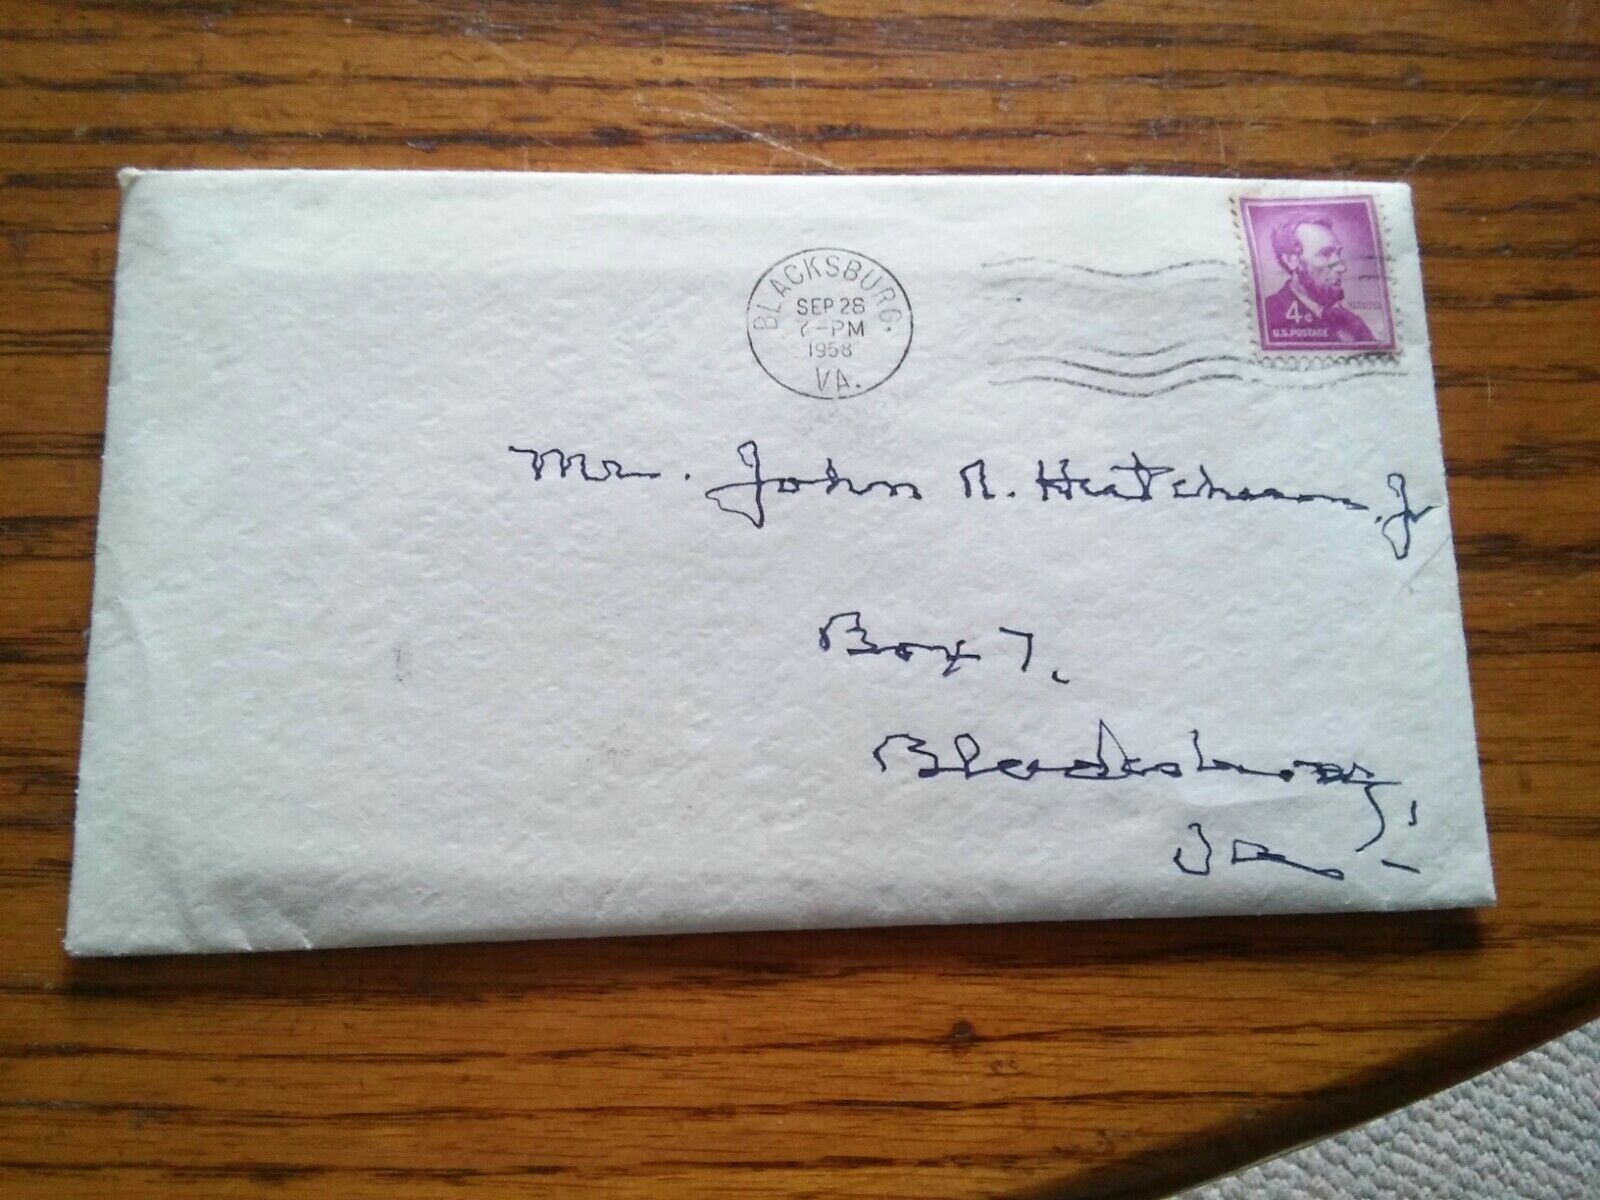 BLACKSBURG.
SEP 26
7-PM
1958
VA.
4¢
U.S. POSTAGE
Mr. John R. Hutcheson, Jr
Box 7.
Blacksburg,
Va.